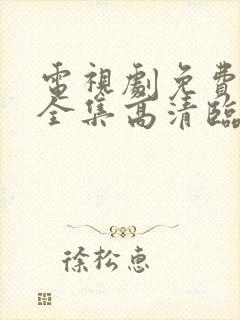 電視劇免費
全集高清臨
徐松惠